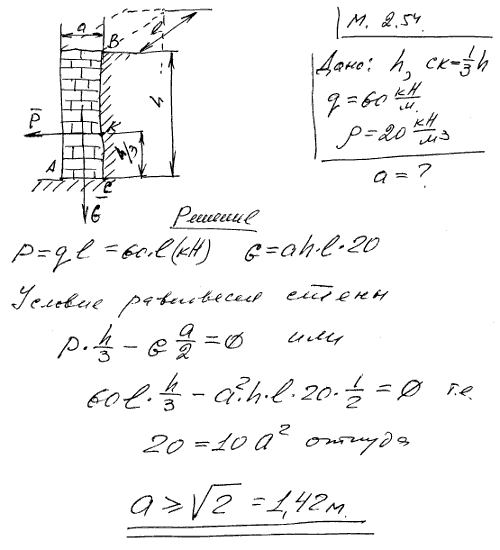 М. 2.54.
Дано: h, CK=1/3 h
q=60 кН/м.
ρ=20 кН/м3
a = ?
a
B
l
h
P
K
h/3
A
C
G
Решение
P=ql =60·l(кН) G=ah·l·20
Условие равновесия стены
P·h/3 − G a/2 = 0 или
60l·h/3 − a²·h·l·20·1/2 = 0 т.е.
20 = 10a² откуда
a ≥ √2 = 1,42 м.